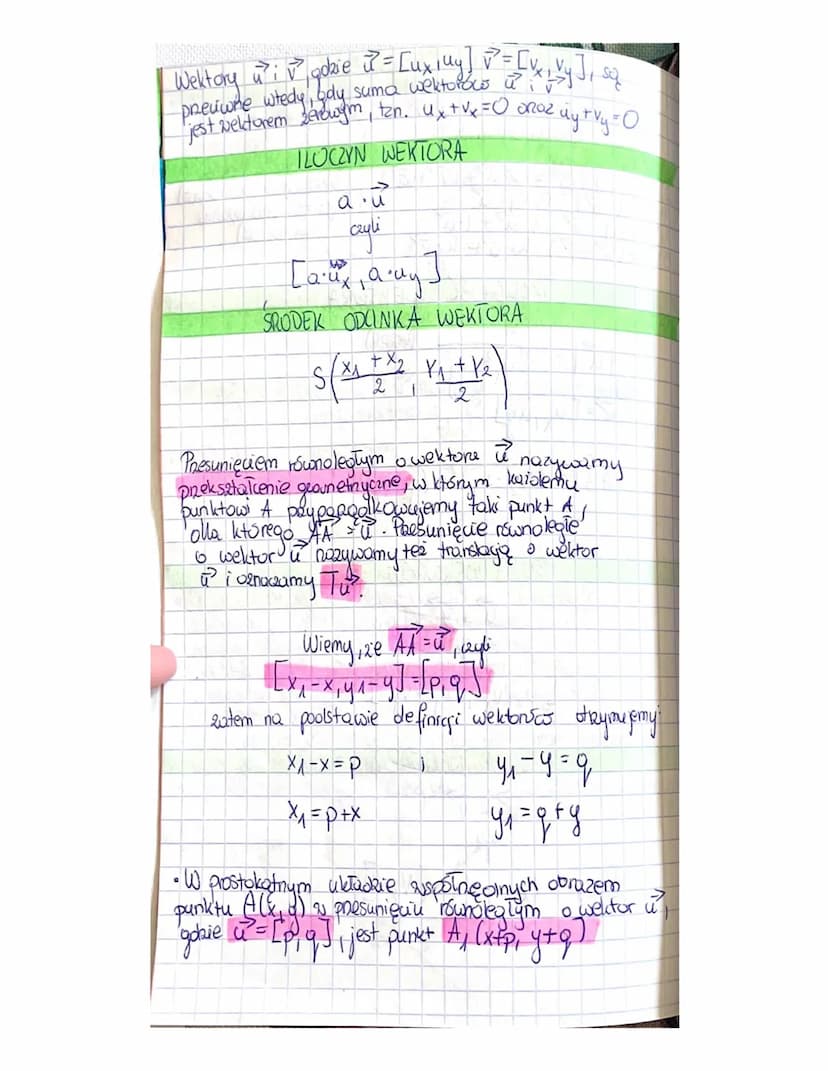 Wektory u⃗ i v⃗, gdzie u⃗ = [ux, uy] v⃗ = [vx, vy], są
przeciwne wtedy, gdy suma wektorów u⃗ i v⃗
jest wektorem zerowym, tzn. ux + vx = 0 oraz uy + vy = 0
ILOCZYN WEKTORA
a · u⃗
czyli
[a·ux, a·uy]
ŚRODEK ODCINKA WEKTORA
S((x1 + x2)/2, (Y1 + Y2)/2)
Przesunięciem równoległym o wektorze u⃗ nazywamy
przekształcenie geometryczne, w którym każdemu
punktowi A przyporządkowujemy taki punkt A,
dla którego AA⃗ = u⃗. Przesunięcie równoległe
o wektor u⃗ nazywamy też translacją o wektor
u⃗ i oznaczamy Tu⃗.
Wiemy, że AA⃗ = u⃗, czyli
[x1 - x, y1 - y] = [p, q]
zatem na podstawie definicji wektorów otrzymujemy
x1 - x = p i y1 - y = q
x1 = p + x y1 = q + y
• W prostokątnym układzie współrzędnych obrazem
punktu A(x, y) w przesunięciu równoległym o wektor u⃗,
gdzie u⃗ = [p, q], jest punkt A1(x+p, y+q)